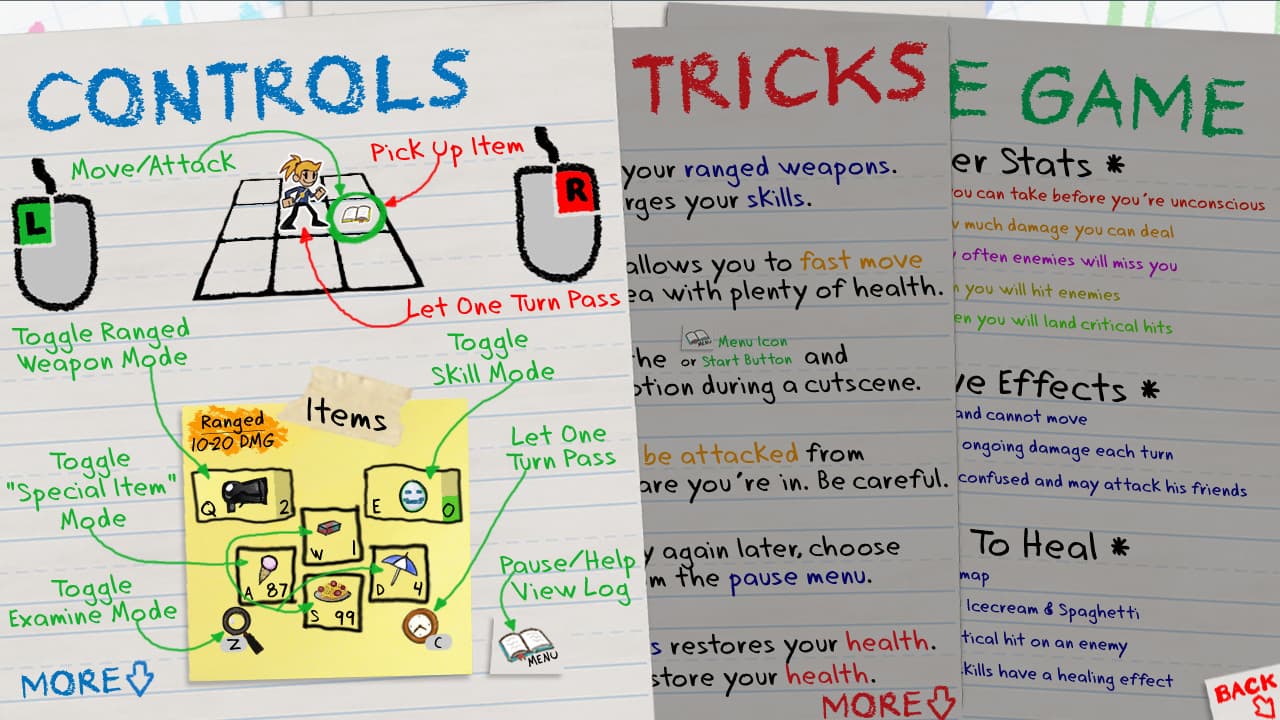 CONTROLS
Move/Attack
Pick Up Item
L
R
Let One Turn Pass
Toggle Ranged
Weapon Mode
Toggle
Skill Mode
Items
Ranged
10-20 DMG
Let One
Turn Pass
Toggle
"Special Item"
Mode
Q 2
E 0
W 1
A 87
D 4
S 99
Toggle
Examine Mode
Z
C
Pause/Help
View Log
MENU
MORE
TRICKS
your ranged weapons.
rges your skills.
allows you to fast move
ea with plenty of health.
he
MENU
Menu Icon
or Start Button and
otion during a cutscene.
be attacked from
are you're in. Be careful.
y again later, choose
m the pause menu.
s restores your health.
store your health.
MORE
E GAME
er Stats *
ou can take before you're unconscious
w much damage you can deal
often enemies will miss you
n you will hit enemies
en you will land critical hits
ve Effects *
and cannot move
ongoing damage each turn
confused and may attack his friends
To Heal *
map
Icecream & Spaghetti
tical hit on an enemy
kills have a healing effect
BACK